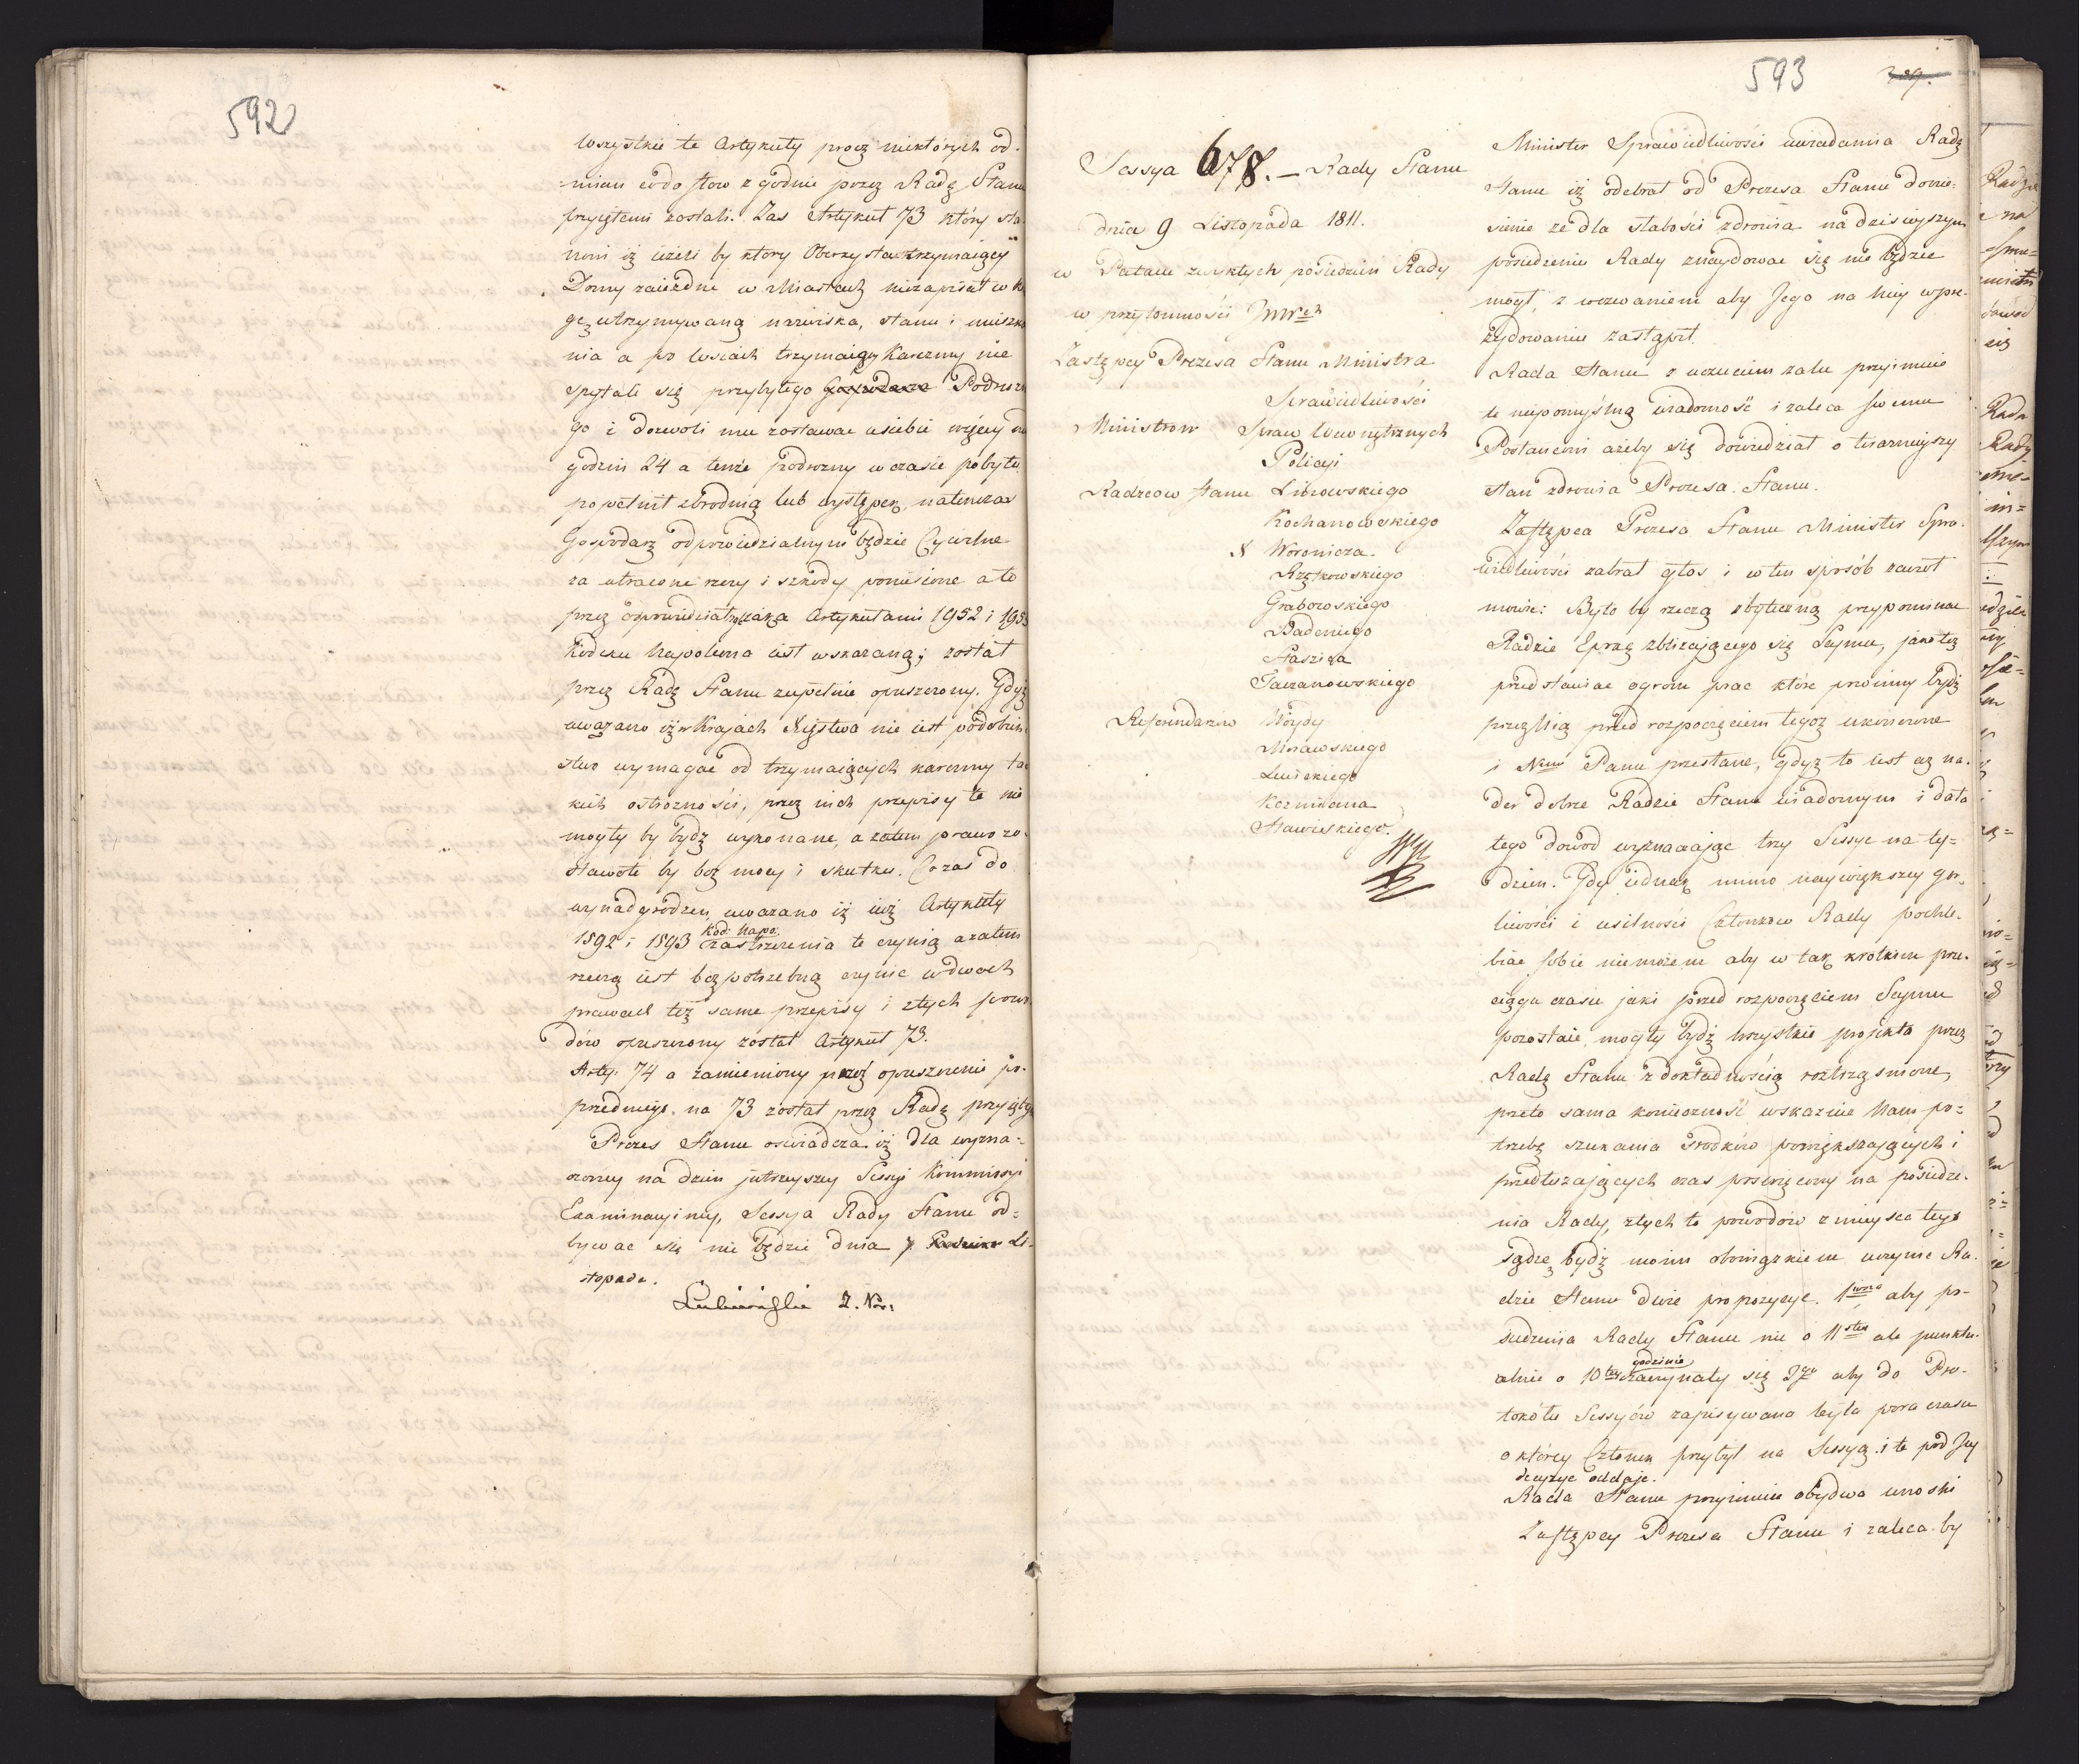 592
wszystkie te Artykuły prócz niektórych od-
=mian codo słow zgodnie przez Radę Stanu
przyiętemi zostali. Zas Artykuł 73 który sta-
nowi iż ieżeli by który Oberzysta trzymaiący
Domy zaiezdne w Miastach niezapisał w
gę utrzymywaną nazwiska, stanu i mieszka
nia a po wsiach trzymaiący Karczmy nie
spytali się przybyłego Gospodarza Podrozne
go i dozwoli mu zostawac usiebie więcey nad
godzin 24 a tenże podrozny w czasie pobytu
popełnił zbrodnią lub występek, natenczas
Gospodarz odpowiedzialnym będzie Cywilne
za utracone rzeczy i szkody poniesione a to
przez odpowiedzialność iaka Artykułami 1952 i 1953
Kodexu Napoleona iest wskazaną; został
przez Radę Stanu zupełnie opuszczony. Gdyż
uwazano iż w Krajach Xięstwa nie iest podobień-
stwo wymagać od trzymaiących karczmy ta-
kich ostrożności, przez nich przepisy te nie
mogły by bydź wykonane, a zatem prawo zo-
stawało by bez mocy i skutku. Co zas do
wynadgrodzen, uwazano iż iuż Artykuły
Kod: Napo:
1592 i 1593 zastrzezenia te czynią azatem
rzeczą iest bezpotrzebną czynic w dwoch
prawach też same przepisy i ztych powo
dów opuszczony został Artykuł 73.
Arty: 74 a zamieniony przez opuszczenie po-
przedniego, na 73 został przez Radę przyięty
Prezes Stanu oswiadcza iż dla wyzna-
czoney na dzien jutrzeyszy Sessyi Kommissyi
Examinacyiney, Sessya Rady Stanu od=
bywac się nie będzie dnia 7 Li-
stopada.
Z. No:
593
Sessya 678. – Rady Stanu
dnia 9 Listopada 1811.
w Pałacu zwykłych posiedzeń Rady
w przytomności JWW
Zastępcy Prezesa Stanu Ministra
Sprawiedliwości
Ministrow Spraw Wewnętrznych
Policyi
Radzcow Stanu Linowskiego
Kochanowskiego
X Woronicza.
Rzętkowskiego
Grabowskiego
Badeniego
Staszica
Taczanowskiego
Referendarzow Wozydy
Morawskiego
Lewickiego
Kozmiana
Stawiskiego.
Minister Sprawiedliwości uwiadamia Radę
Stanu iż odebrał od Prezesa Stanu donie-
sienie że dla słabości zdrowia na dzisieyszym
posiedzeniu Rady znaydowac się nie będzie
mogł, z wezwaniem aby Jego na niey wpre-
zydowaniu zastąpił.
Rada Stanu z uczuciem zalu przyimuie
te niepomyślną wiadomość i zaleca swemu
Posłańcowi ażeby się dowiedział o terazniejszy
stan zdrowia Prezesa Stanu.
Zastępca Prezesa Stanu Minister Spra-
wiedliwości zabrał głos i w ten sposób zaczoł
mowić: Było by rzeczą zbyteczną przypominac
Radzie Epokę zblizającego się Sejmu, jako też
przedstawiac ogrom prac które powinny bydź
przez Nią przed rozpoczęciem tegoż ukonczone
i Nmu Panu przesłane, gdyż to iest aż na-
der dobrze Radzie Stanu wiadomym i dała
tego dowod wyznaczając trzy Sessye na ty=
dzien. Gdy iednak mimo naywiększey gor-
liwości i usilności Członkow Rady pochle-
biac sobie niemożem aby w tak krótkim prze-
ciągu czasu jaki przed rozpoczęciem Seymu
pozostaie, mogły bydź wszystkie projekta przez
Radę Stanu z dokładnością roztrząsnione,
przeto sama konieczność wskazuie Nam po=
trzebę szukania środków powiększających i
przedłużających czas poswięcony na posiedze-
nia Rady, ztych to powodów z mieysca tego
sądzę bydź moim obowiązkiem uczynic Ra-
dzie Stanu dwie propozycye. 1wszo aby po-
siedzenia Rady Stanu nie o 11sten ale punktu-
godzinie
alnie o 10tey zaczynały się 2go aby do Pro-
tokołu Sessyów zapisywana była pora czasu
o którey Członek przybył na Sessyą i te pod Jey
decyzye oddaje.
Rada Stanu przyimuie obydwa wnoski
Zastępcy Prezesa Stanu i zaleca by